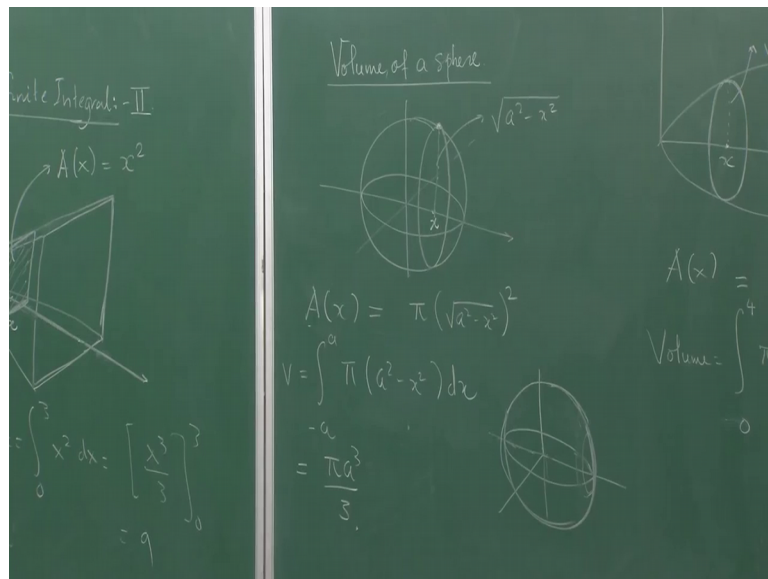 finite Integral:-II
A(x) = x²
x
= ∫₀³ x² dx = [x³/3]₀³
= 9
Volume of a sphere
√(a² - x²)
x
A(x) = π(√(a² - x²))²
V = ∫₋ₐᵃ π(a² - x²) dx
= πa³/3.
x
A(x) =
Volume = ∫₀⁴ π